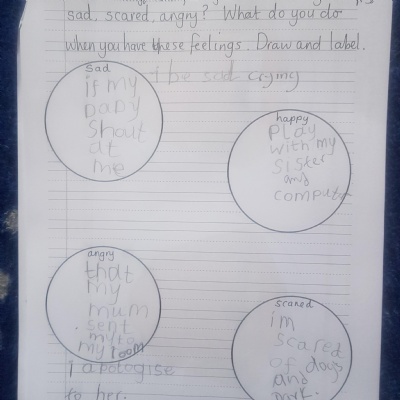 sad, scared, angry? What do you do
when you have these feelings. Draw and label.
sad
if my
papy
shout
at
me
I be sad crying
happy
play
with my
sister
and
computer
angry
that
my
mum
sent
my to
my room
I apologise
to her.
scared
im
scared
of dogs
and
park.